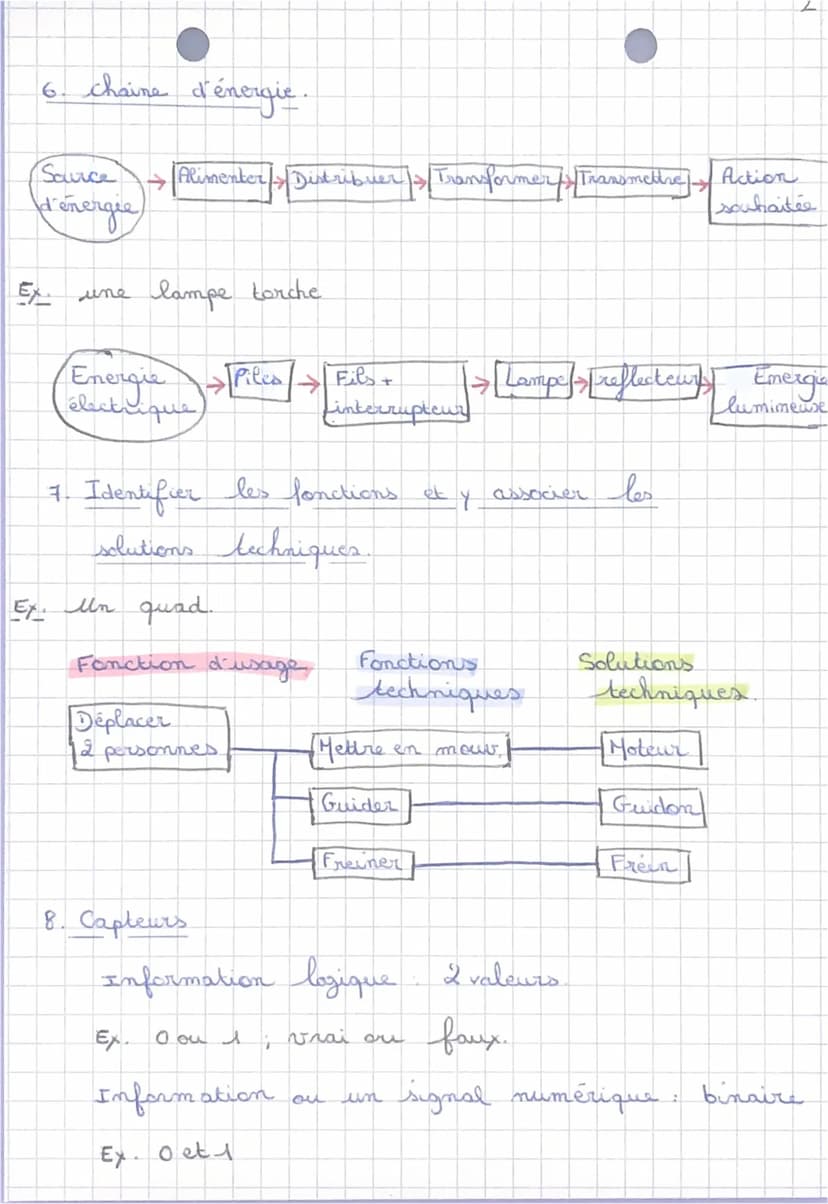 2
6. chaine d'énergie.
Source d'énergie → Alimenter → Distribuer → Transformer → Transmettre → Action souhaitée
Ex. une lampe torche
Energie électrique → Piles → Fils + interrupteur → Lampe → reflecteur → Energie lumineuse
7. Identifier les fonctions et y associer les
solutions techniques.
Ex. Un quad.
Fonction d'usage Fonctions techniques Solutions techniques.
Déplacer 2 personnes
Mettre en mouv. Moteur
Guider Guidon
Freiner Frein
8. Capteurs
Information logique : 2 valeurs.
Ex. 0 ou 1 ; vrai ou faux.
Information ou un signal numérique : binaire
Ex. 0 et 1